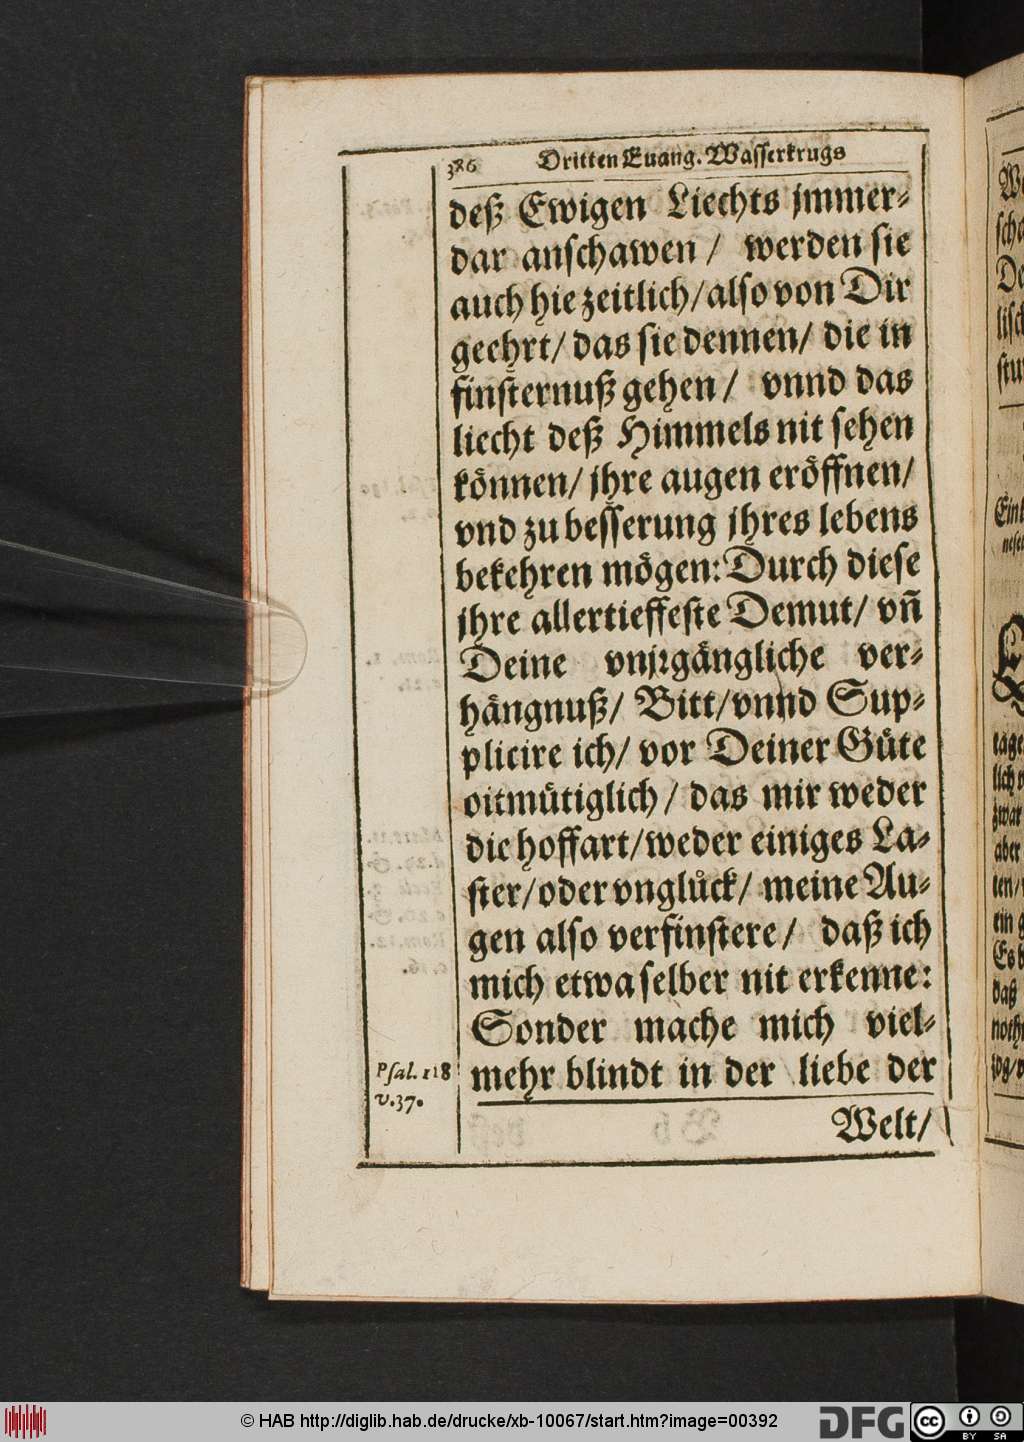 386 Dritten Euang. Wasserkrugs
deß Ewigen Liechts jmmer-
dar anschawen / werden sie
auch hie zeitlich/ also von Dir
geehrt/ das sie dennen/ die in
finsternuß gehen / vnnd das
liecht deß Himmels nit sehen
können/ jhre augen eröffnen/
vnd zu besserung jhres lebens
bekehren mögen: Durch diese
jhre allertieffeste Demut/ vñ
Deine vnjrgängliche ver-
hängnuß/ Bitt/ vnnd Sup-
plicire ich/ vor Deiner Güte
oitmütiglich/ das mir weder
die hoffart/ weder einiges La-
ster/ oder vnglůck/ meine Au-
gen also verfinstere/ daß ich
mich etwa selber nit erkenne:
Sonder mache mich viel-
mehr blindt in der liebe der
Psal. 118
v.37.
Welt/
© HAB http://diglib.hab.de/drucke/xb-10067/start.htm?image=00392
DFG
cc BY SA